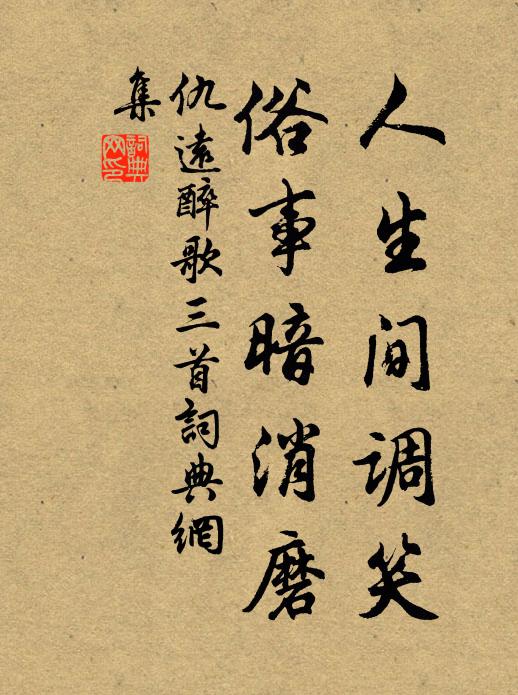 人生间调笑
俗事暗消磨
仇遠醉歌三首詞典網
集
詞典
网印